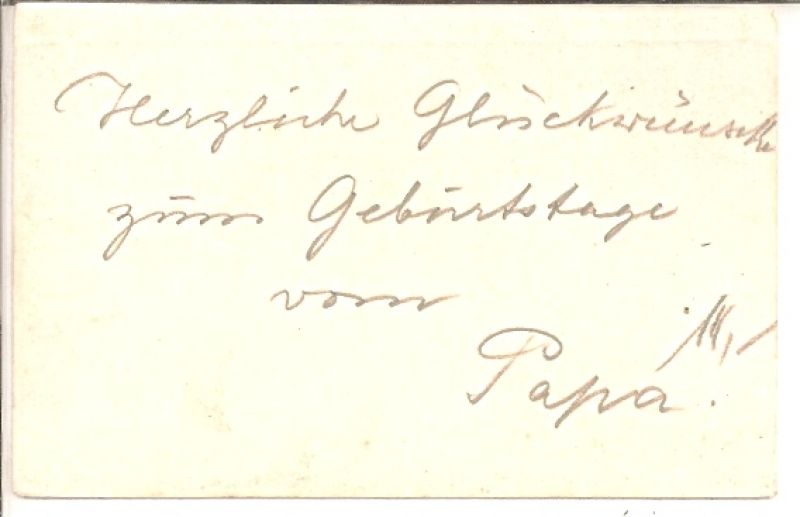 Herzliche Glückwünsche
zum Geburtstage
vom
Papa.